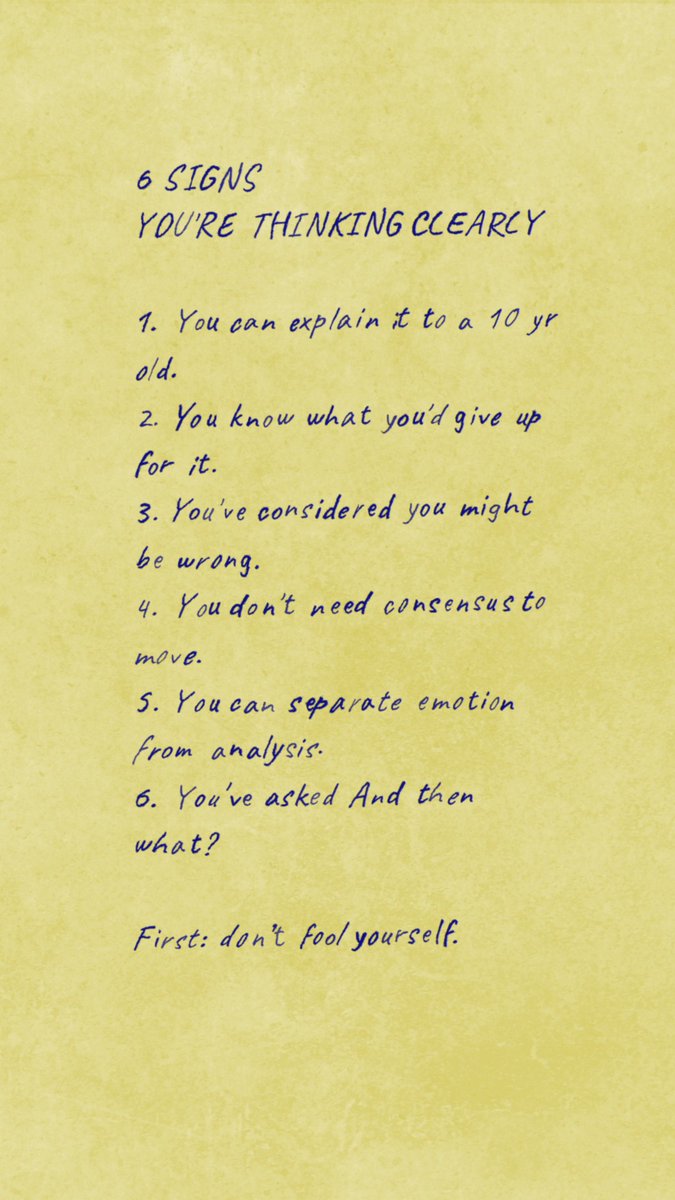 6 SIGNS
YOU'RE THINKING CLEARLY
1. You can explain it to a 10 yr
old.
2. You know what you'd give up
for it.
3. You've considered you might
be wrong.
4. You don't need consensus to
move.
5. You can separate emotion
from analysis.
6. You've asked And then
what?
First: don't fool yourself.